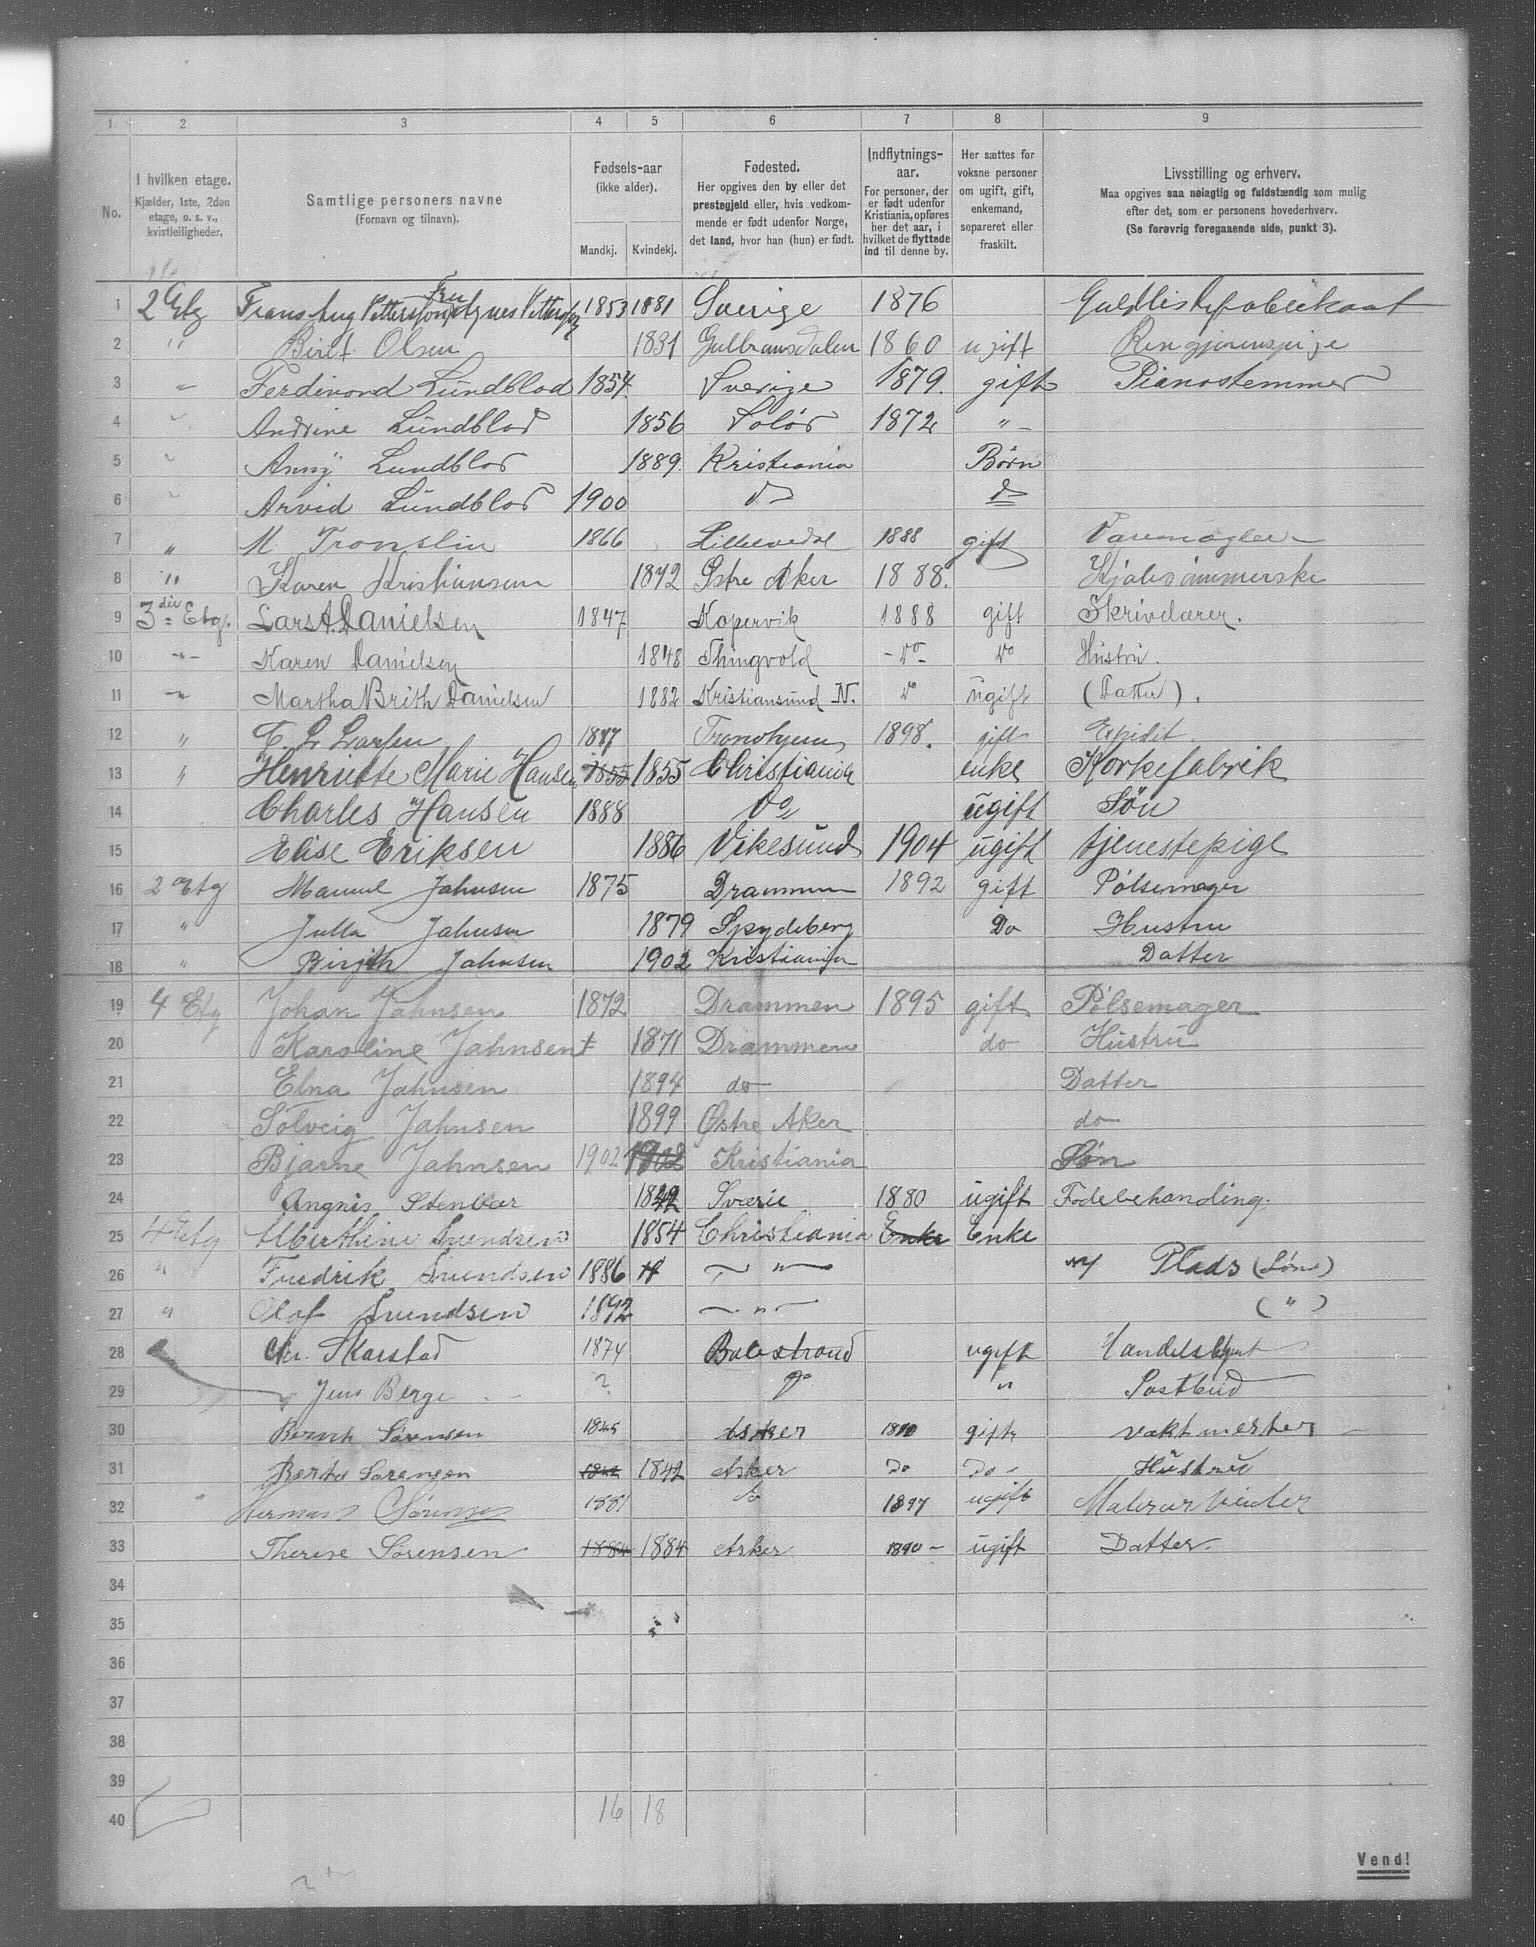 1 2 3 4 5 6 7 8 9
No.
I hvilken etage.
Kjælder, 1ste, 2den
etage, o. s. v.,
kvistleiligheder.
Samtlige personers navne
(Fornavn og tilnavn).
Fødsels-aar
(ikke alder).
Mandkj. Kvindekj.
Fødested.
Her opgives den by eller det
prestegjeld eller, hvis vedkom-
mende er født udenfor Norge,
det land, hvor han (hun) er født.
Indflytnings-
aar.
For personer, der
er født udenfor
Kristiania, opføres
her det aar, i
hvilket de flyttede
ind til denne by.
Her sættes for
voksne personer
om ugift, gift,
enkemand,
separeret eller
fraskilt.
Livsstilling og erhverv.
Maa opgives saa nøiagtig og fuldstændig som mulig
efter det, som er personens hovederhverv.
(Se forøvrig foregaaende side, punkt 3).
1 2 Etg Frans Aug Pettersson, Fru Agnes 1853 1881 Sverige 1876 Guldlistefabrikant
2 " Biret Olsen 1831 Gulbransdalen 1860 ugift Rengjørenspige
3 " Ferdinand Lundblad 1854. Sverige 1879. gift Pianostemmer
4 " Andrine Lundblad 1856 Solør 1872 "
5 " Anny Lundblad 1889. Kristiania Børn
6 " Arvid Lundblad 1900 do do
7 " M Tronslin 1866 1888 gift
8 " Karen Kristiansen 1872 Østre Aker 1888. Kjolesømmerske
9 3die Etg. Lars A. Danielsen 1847 Kopervik 1888 gift Skrivelærer.
10 " Karen Danielsen 1848 Thingvold do do Hustru.
11 " Martha Brith Danielsen 1882 Kristiansund N. do ugift (Datter).
12 " C L Larsen 1847 Trondhjem 1898. gift Expedit.
13 " Henriette Marie Hansen 1855 1855 Christiania enke Korkefabrik
14 Charles Hansen 1888 Do ugift Søn
15 Elise Eriksen 1886 Vikesund 1904 ugift tjenestepige
16 2 Etg Manuel Jahnsen 1875 Drammen 1892 gift Pølsemager
17 " Julla Jahnsen 1879 Spydeberg Do Hustru
18 " Birgith Jahnsen 1902 Kristiania Datter
19 4 Etg Johan Jahnsen 1872 Drammen 1895 gift Pølsemager
20 Karoline Jahnsen 1871 Drammen do Hustru
21 Elna Jahnsen 1894 do Datter
22 Solveig Jahnsen 1899 Østre Aker do
23 Bjarne Jahnsen 1902 1902 Kristiania Søn
24 Angnis Stenbær Sværie 1880 ugift Fodebehandling.
25 4 Etg Alberthine Svendsen 1854 Christiania Enke Enke
26 " Fredrik Svendsen 1886 " Plads (Søn)
27 " Olaf Svendsen 1892 " (")
28 Chr. Skarstad 1874 Balestrand ugift
29 Jens Berge ? " Postbud
30 Bernt Sørensen 1845 Asker gift vaktmester
31 Berta Sørensen 1842 1842 Asker Do Do Hustru
32 Herman Sørensen 1881 do 1897 ugift
33 Therese Sørensen 1884 1884 Asker 1890 ugift Datter.
34
35
36
37
38
39
40 16 18
Vend!